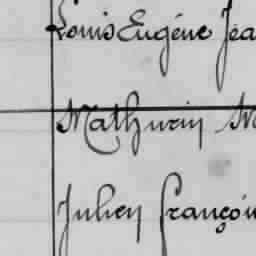 Louis Eugène Jea
Mathurin M
Julien François